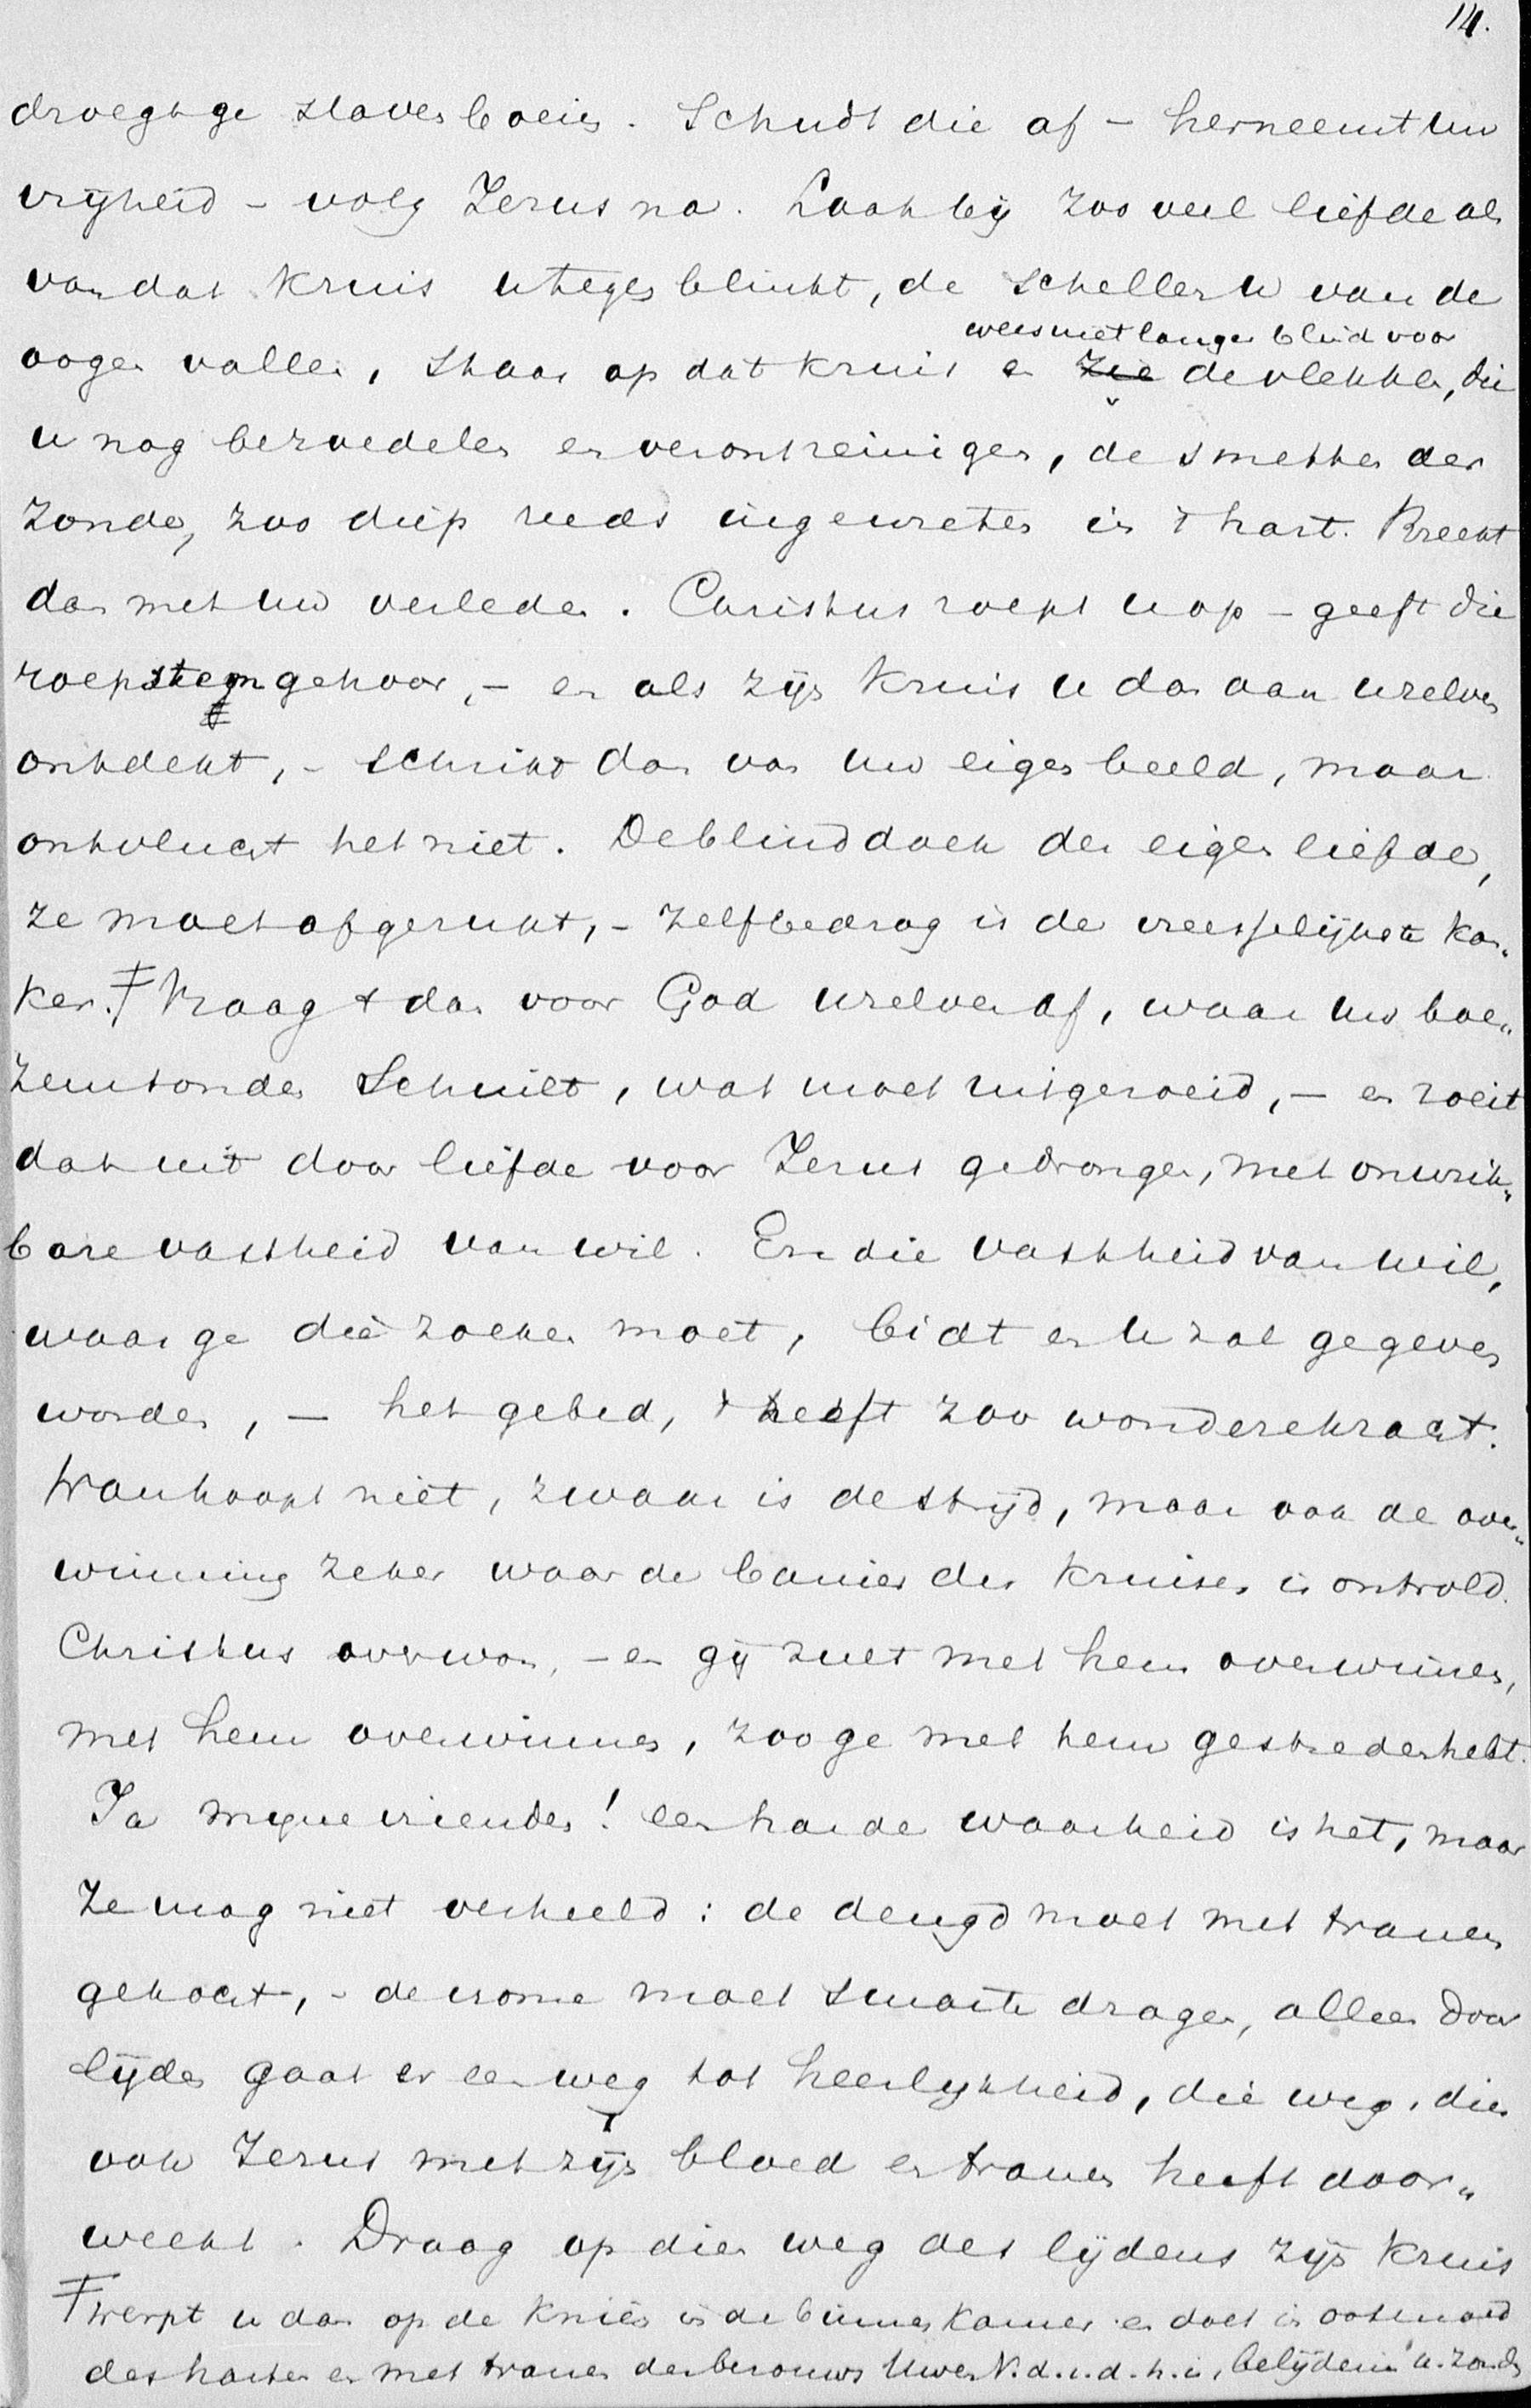 14.
droegt ge slavenboeien. Schudt die af – herneemt uw
vrijheid – volg Jezus na. Laat bij zoo veel liefde als
van dat kruis u tegenblinkt, de schellen u van de
weest niet langer blind voor
oogen vallen, staar op dat kruis en zie de vlekken, die
u nog bezoedelen en verontreinigen, de smetten der
zonde, zoo diep reeds ingevreten in 't hart. Breekt
dan met uw verleden. Christus roept u op – geeft die
roepstem gehoor, – en als zijn kruis u dan aan uzelven
ontdekt, – schrikt dan van uw eigen beeld, maar
ontvlucht het niet. De blinddoek der eigenliefde,
ze moet afgerukt, – zelfbedrog is de vreesselijkste kan„
ker. Ŧ Vraagt dan voor God uzelven af, waar uw boe„
zemzonden schuilt, wat moet uitgeroeid, – en roeit
dat uit door liefde voor Jezus gedrongen, met onwrik„
bare vastheid van wil. En die vastheid van wil,
waar ge die zoeken moet, bidt en U zal gegeven
worden, – het gebed, 't heeft zoo wonderekracht.
Wanhoopt niet, zwaar is de strijd, maar ook de over„
winning zeker waar de banier des kruises is ontrold.
Christus overwon, – en gij zult met hem overwinnen,
met hem overwinnen, zoo ge met hem gestreden hebt.
Ja mijne vrienden! een harde waarheid is het, maar
ze mag niet verheeld: de deugd moet met tranen
gekocht, – de vrome moet smarte dragen, alleen door
lijden gaat er een weg tot heerlijkheid, die weg, dien
ook Jezus met zijn bloed en tranen heeft door„
weekt. Draag op dien weg des lijdens zijn kruis
Ŧ werpt u dan op de knieën in de binnenkamer en doet in ootmoed
des harten en met tranen des berouws Uwen V. d. i. d. h. is, belijdenis u. zonden